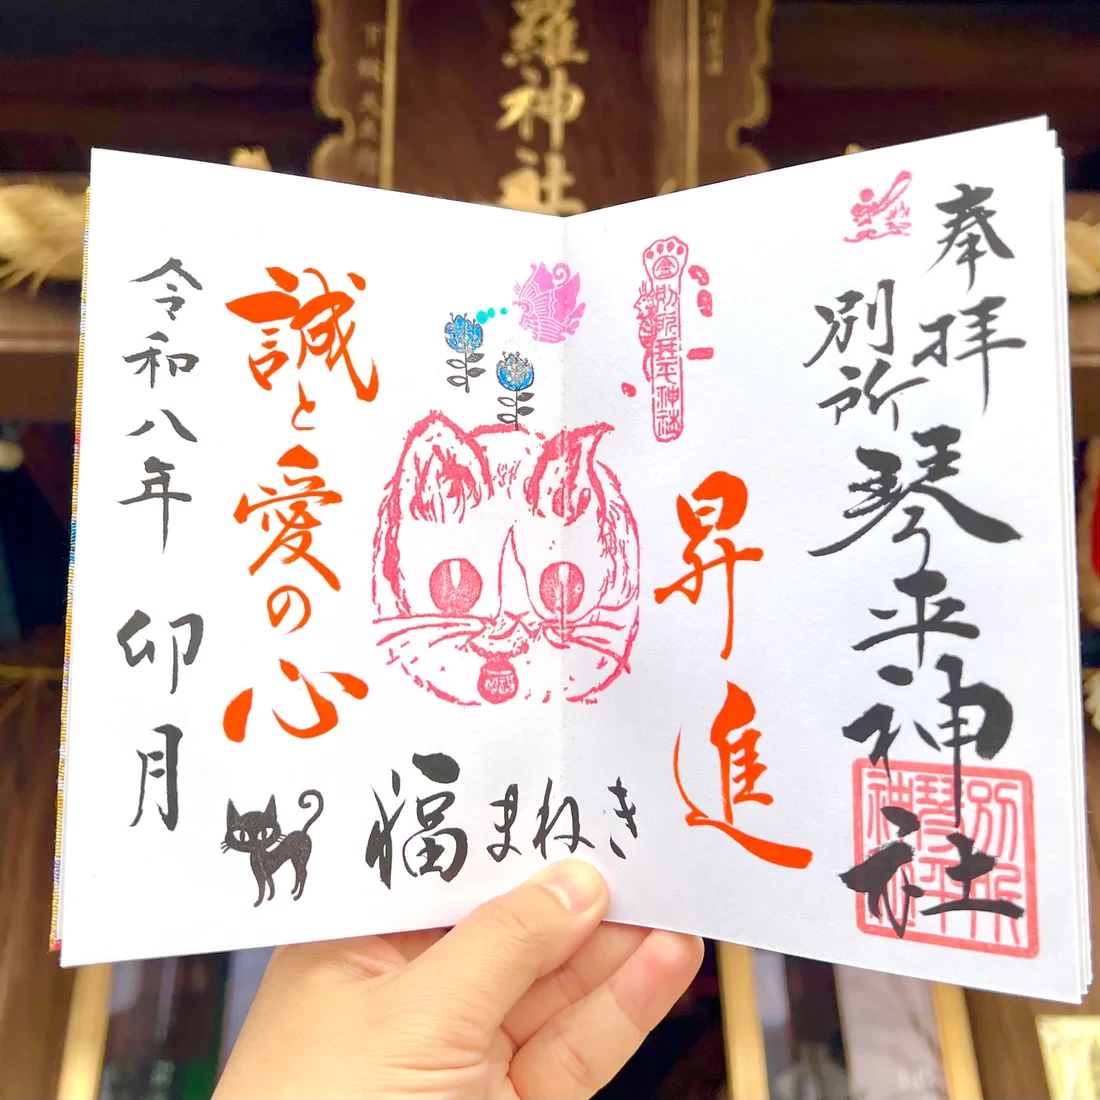 羅神社
奉拝
別所琴平神社
別所琴平神社
金別所琴平神社
昇進
福まねき
誠と愛の心
令和八年 卯月